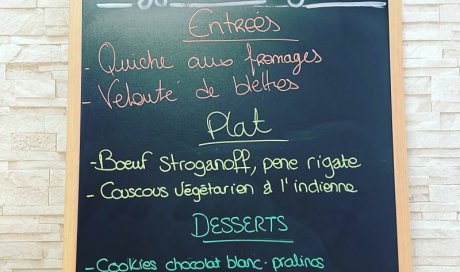 Entreés
- Quiche aux fromages
- Velouté de blettes
Plat
- Bœuf Stroganoff, pene rigate
- Couscous végétarien à l'indienne
DESSERTS
- Cookies chocolat blanc - pralinas